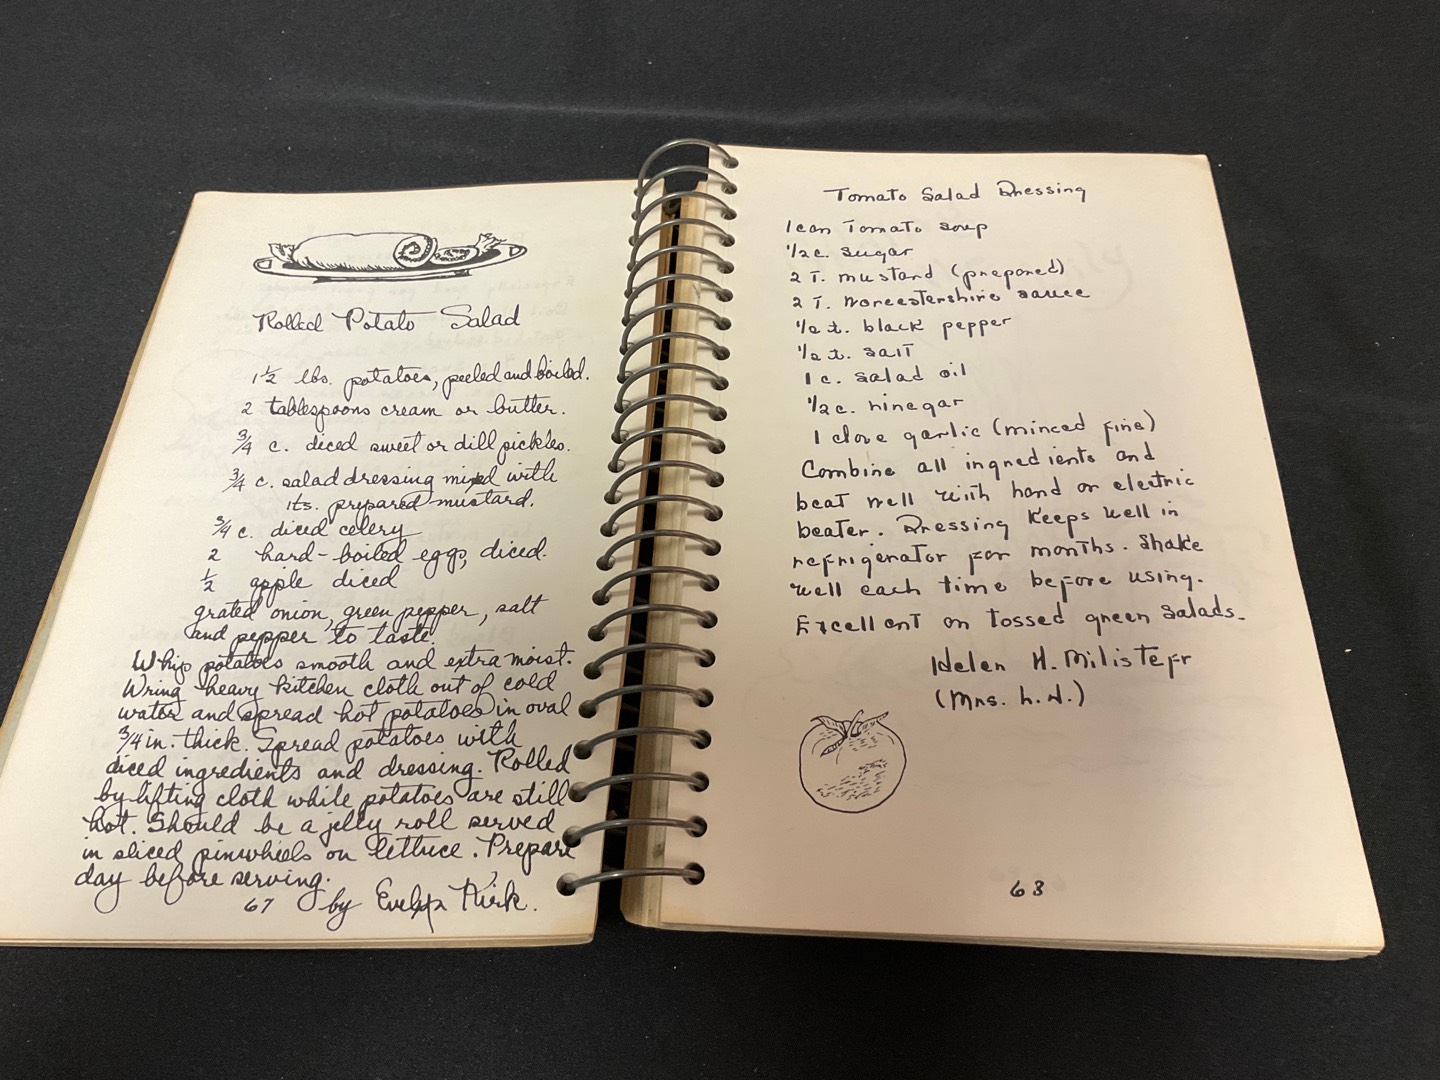 Rolled Potato Salad
1 1/2 lbs. potatoes, peeled and boiled.
2 tablespoons cream or butter.
3/4 c. diced sweet or dill pickles.
3/4 c. salad dressing mixed with
1ts. prepared mustard.
3/4 c. diced celery
2 hard-boiled eggs, diced.
1/2 apple diced
grated onion, green pepper, salt
and pepper to taste.
Whip potatoes smooth and extra moist.
Wring heavy kitchen cloth out of cold
water and spread hot potatoes in oval
3/4 in. thick. Spread potatoes with
diced ingredients and dressing. Rolled
by lifting cloth while potatoes are still
hot. Should be a jelly roll served
in sliced pinwheels on lettuce. Prepare
day before serving.
67 by Evelyn Kirk.
Tomato Salad Dressing
1 can Tomato soup
1/2 c. sugar
2 T. mustard (prepared)
2 T. Worcestershire sauce
1/2 t. black pepper
1/2 t. salt
1 c. salad oil
1/2 c. vinegar
1 clove garlic (minced fine)
Combine all ingredients and
beat well with hand or electric
beater. Dressing keeps well in
refrigerator for months. Shake
well each time before using.
Excellent on tossed green salads.
Helen H.
(Mrs. L. W.)
68